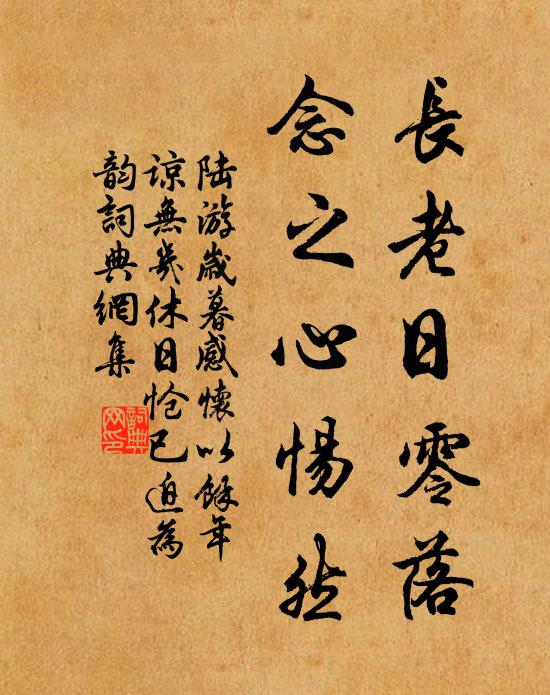 長老日零落
念之心惕然
陆游歲暮感懷以餘年
諒無幾休日愴已迫為
韵詞典網集
詞典网印